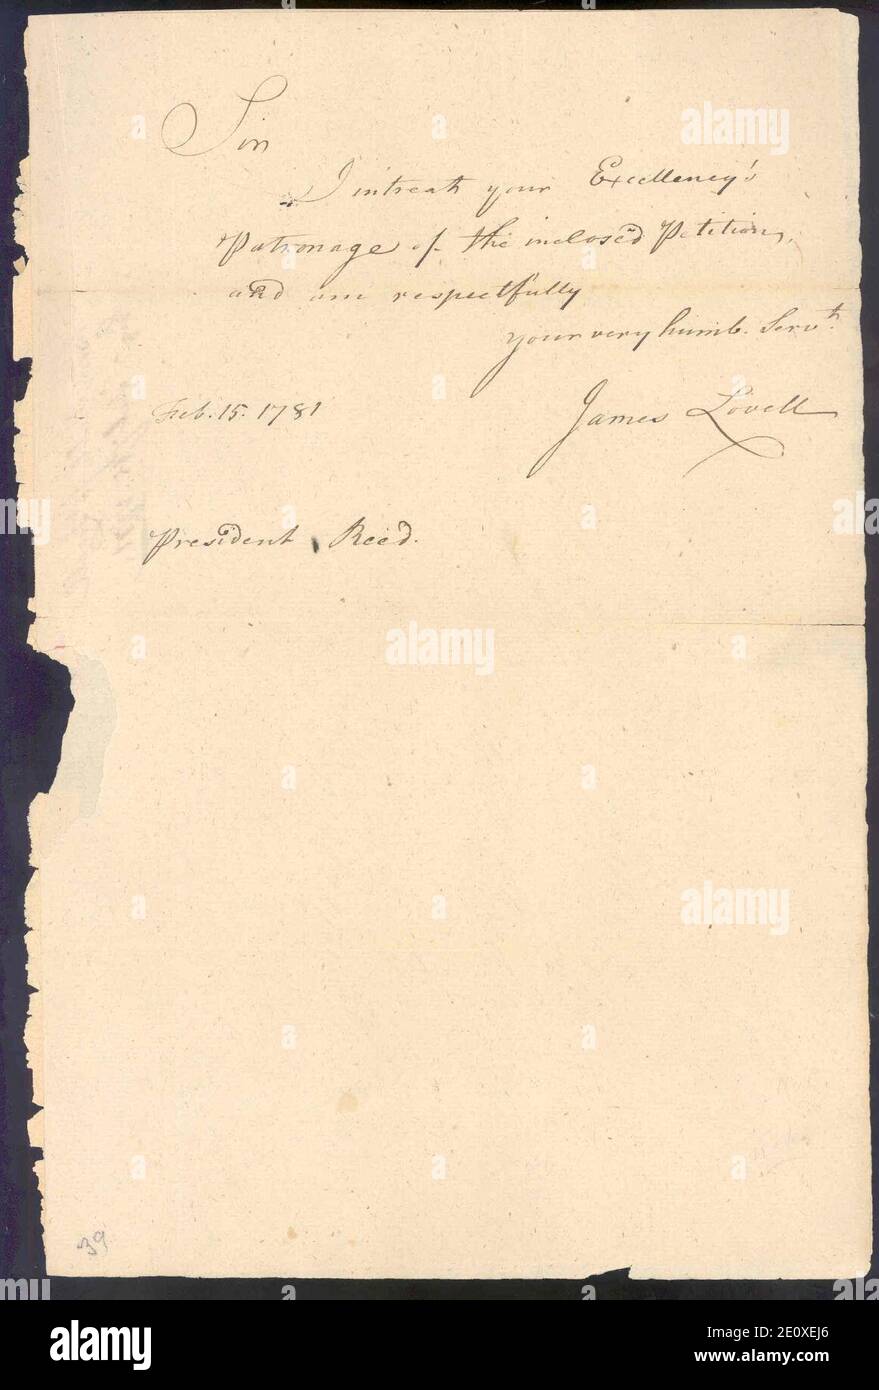 Sir
I intreat your Excellency's
Patronage of the inclosed Petition,
and am respectfully
your very humb. Servt.
Feb. 15. 1781
James Lovell
President Reed.
39
alamy
alamy
alamy
alamy
alamy
Image ID: 2E0XEJ6
www.alamy.com